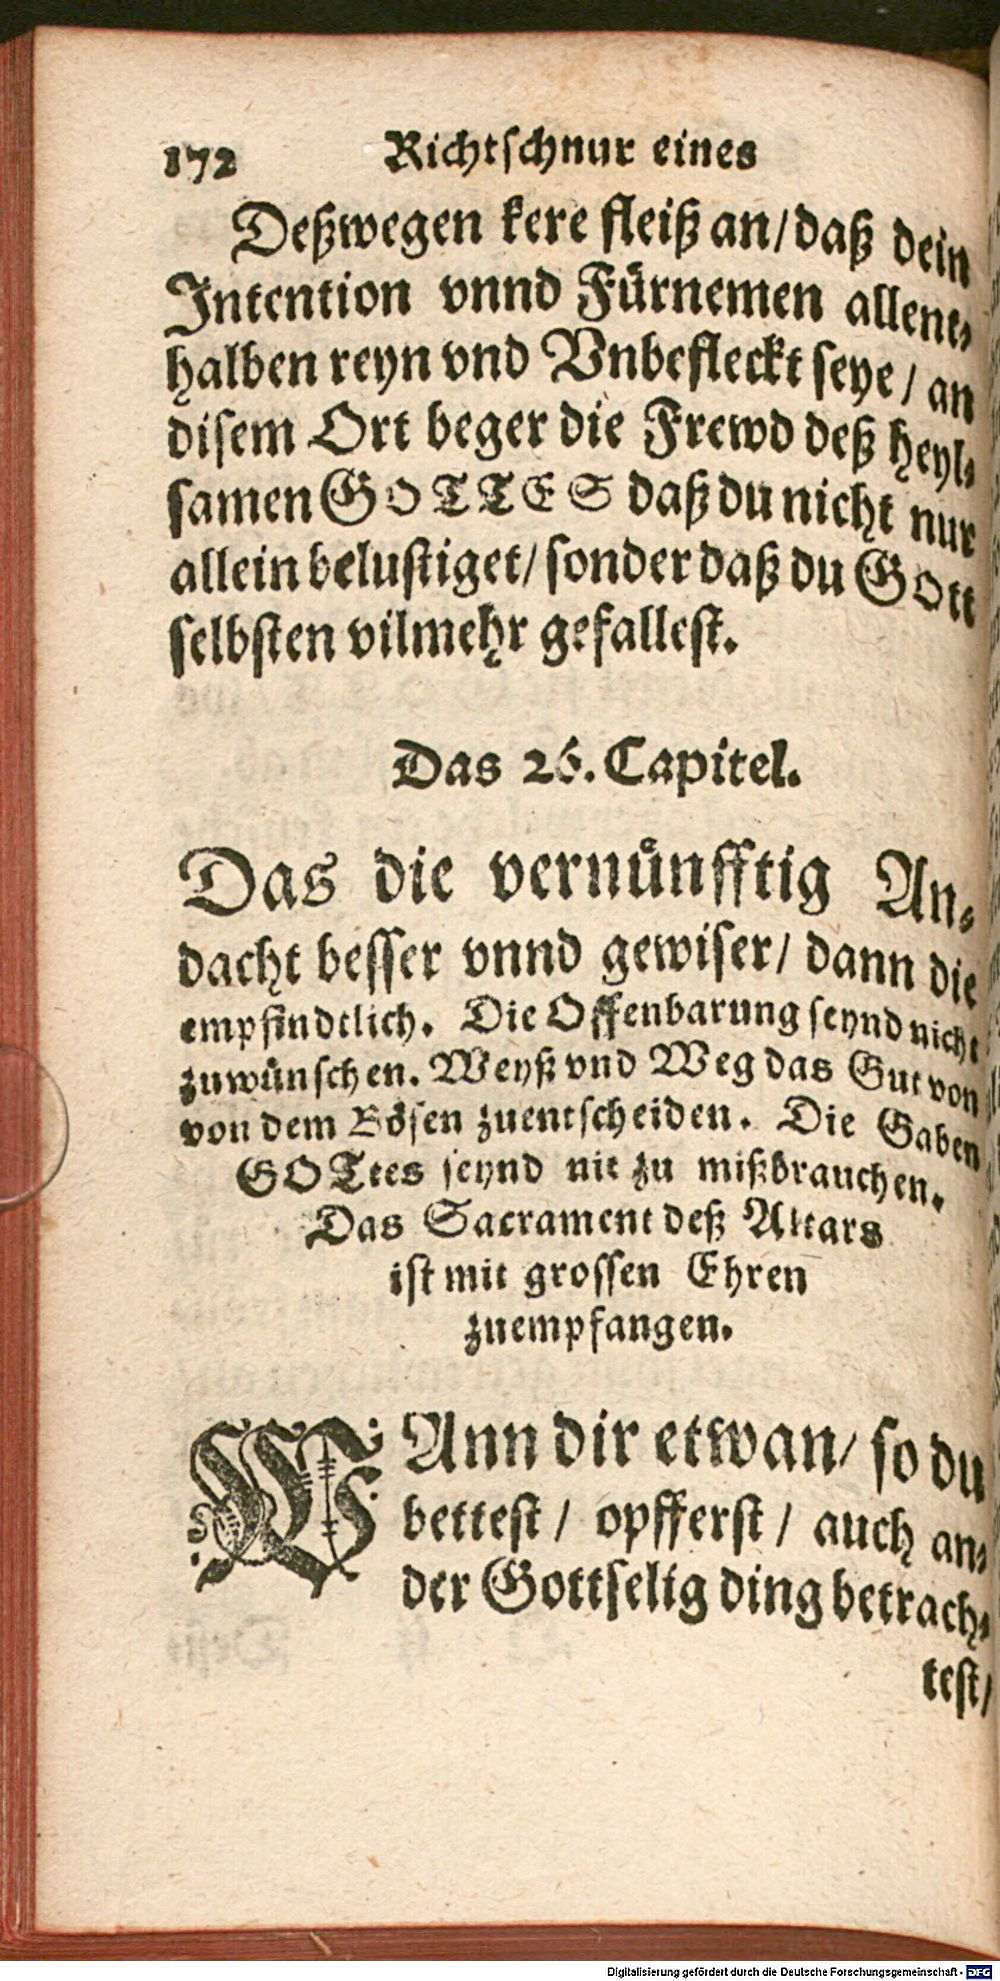 172 Richtschnur eines
Deßwegen kere fleiß an/ daß dein
Intention vnnd Fürnemen allent⸗
halben reyn vnd Vnbefleckt seye / an
disem Ort beger die Frewd deß heyl⸗
samen GOTTES daß du nicht nur
allein belustiget/ sonder daß du GOtt
selbsten vilmehr gefallest.
Das 26. Capitel.
Das die vernünfftig An⸗
dacht besser vnnd gewiser/ dann die
empfindtlich. Die Offenbarung seynd nicht
zuwünschen. Weyß vnd Weg das Gut von
von dem Bösen zuentscheiden. Die Gaben
GOTtes seynd nit zu mißbrauchen.
Das Sacrament deß Altars
ist mit grossen Ehren
zuempfangen.
WAnn dir etwan/ so du
bettest / opfferst / auch an⸗
der Gottselig ding betrach⸗
test/
Digitalisierung gefördert durch die Deutsche Forschungsgemeinschaft - DFG